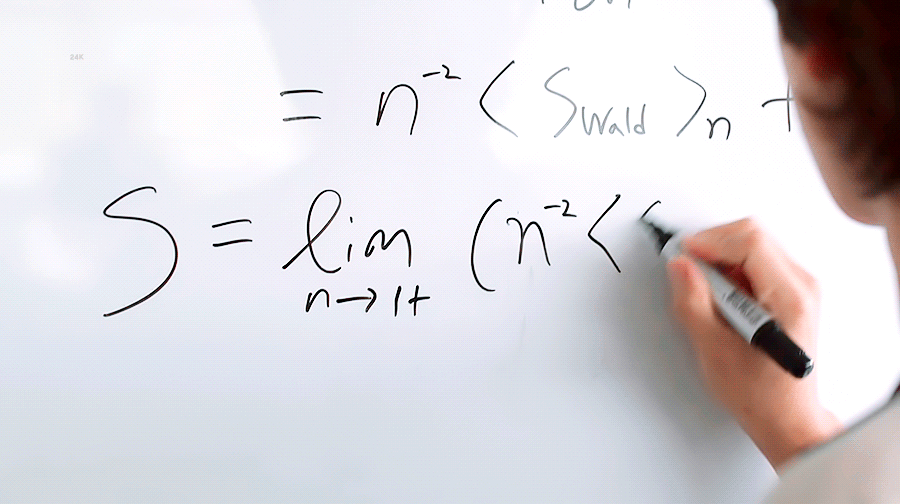 24K
= n⁻² ⟨ S_Wald ⟩_n +
S = lim_{n→1+} (n⁻² ⟨ S